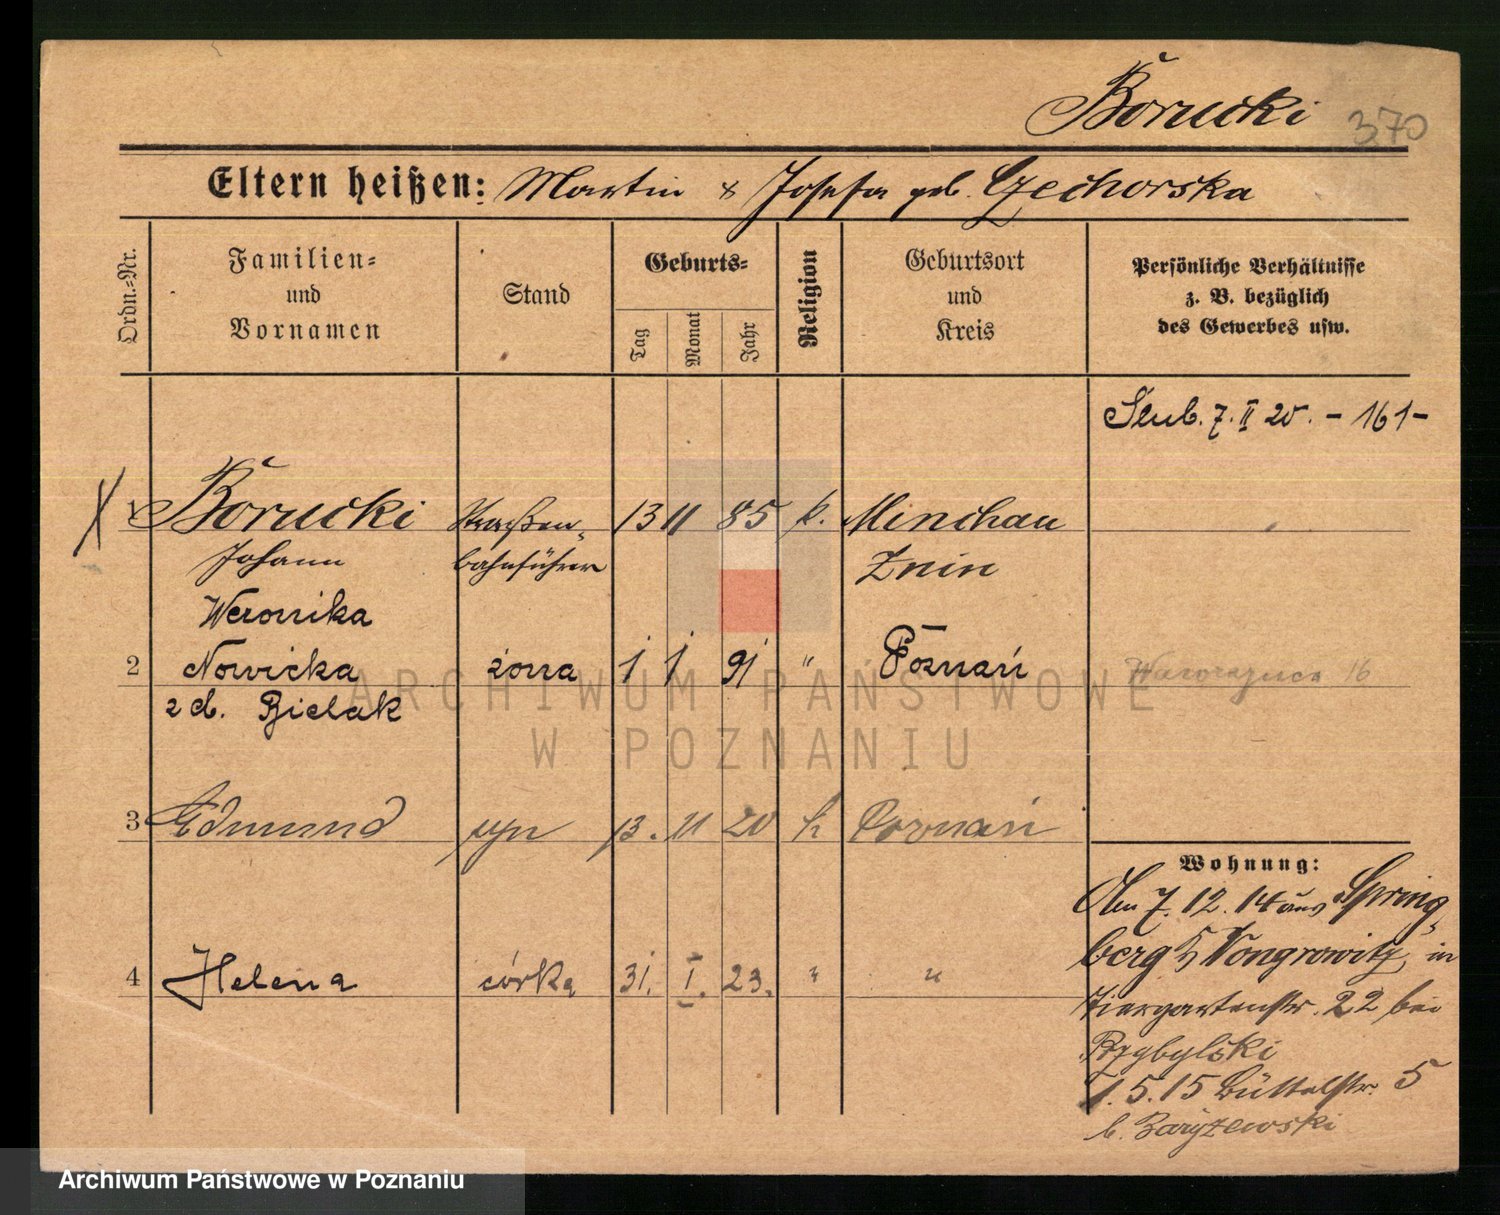 Borucki 370
Eltern heißen: Martin & Josefa geb. Czechorska
Ordn.-Nr.
Familien-
und
Vornamen
Stand
Geburts-
Tag
Monat
Jahr
Religion
Geburtsort
und
Kreis
Persönliche Verhältnisse
z. B. bezüglich
des Gewerbes usw.
Slub. 7. II 20. - 161 -
1 Borucki Straßen- 13 11 85 k. Minchau
Johann bahnführer Znin
Weronika
2 Nowicka żona 1 1 91 " Poznań Wawrzyńca 16
z d. Bielak
3 Edmund syn 13. 11 20 k Poznań
Wohnung:
Am 7. 12. 14 aus Spring
berg Kr Wongrowitz, in
4 Helena córka 31. I. 23. " "
Tiergartenstr. 22 bei
Przybylski
1. 5. 15 Büttelstr. 5
b. Zaryzewski
ARCHIWUM PAŃSTWOWE
W POZNANIU
Archiwum Państwowe w Poznaniu